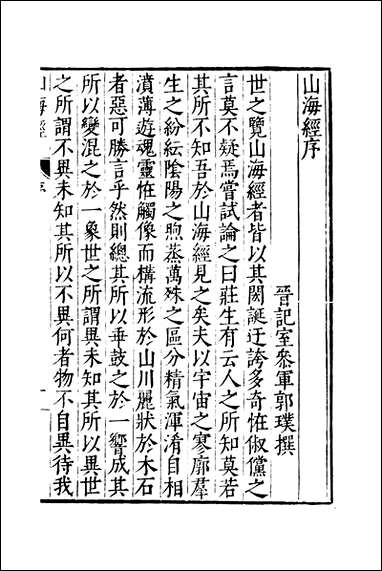 山海經序
晉記室參軍郭璞撰
世之覽山海經者皆以其閎誕迂誇多奇怪俶儻之
言莫不疑焉嘗試論之曰莊生有云人之所知莫若
其所不知吾於山海經見之矣夫以宇宙之寥廓羣
生之紛紜陰陽之煦蒸萬殊之區分精氣渾淆自相
濆薄遊魂靈怪觸像而構流形於山川麗狀於木石
者惡可勝言乎然則總其所以乖鼓之於一響成其
所以變混之於一象世之所謂異未知其所以異世
之所謂不異未知其所以不異何者物不自異待我
山海經
序
一